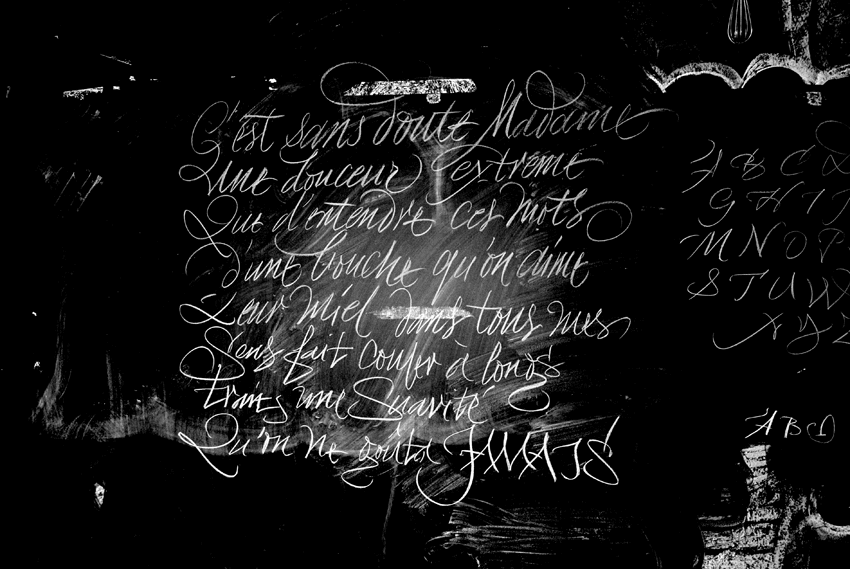 C'est sans doute Madame
Une douceur extreme
Que d'entendre ces mots
d'une bouche qu'on aime
Leur miel dans tous mes
Sens fait couler à longs
traits une Suavité
Qu'on ne goûta JAMAIS
A B C D
G H I J
M N O P
S T U W
X Y Z
A B D